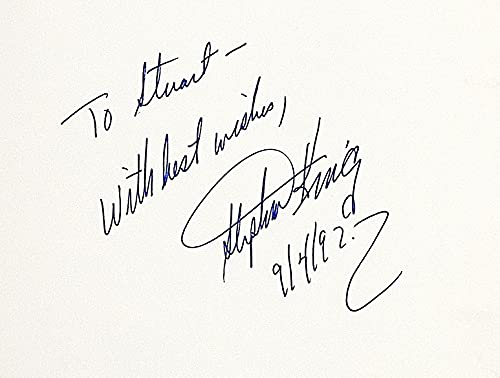 To Stuart—
With best wishes,
Stephen King
9/4/92.